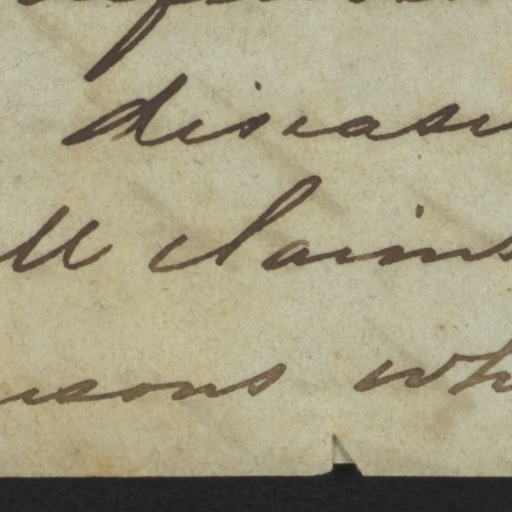 diseas
ll claims
rsons wh